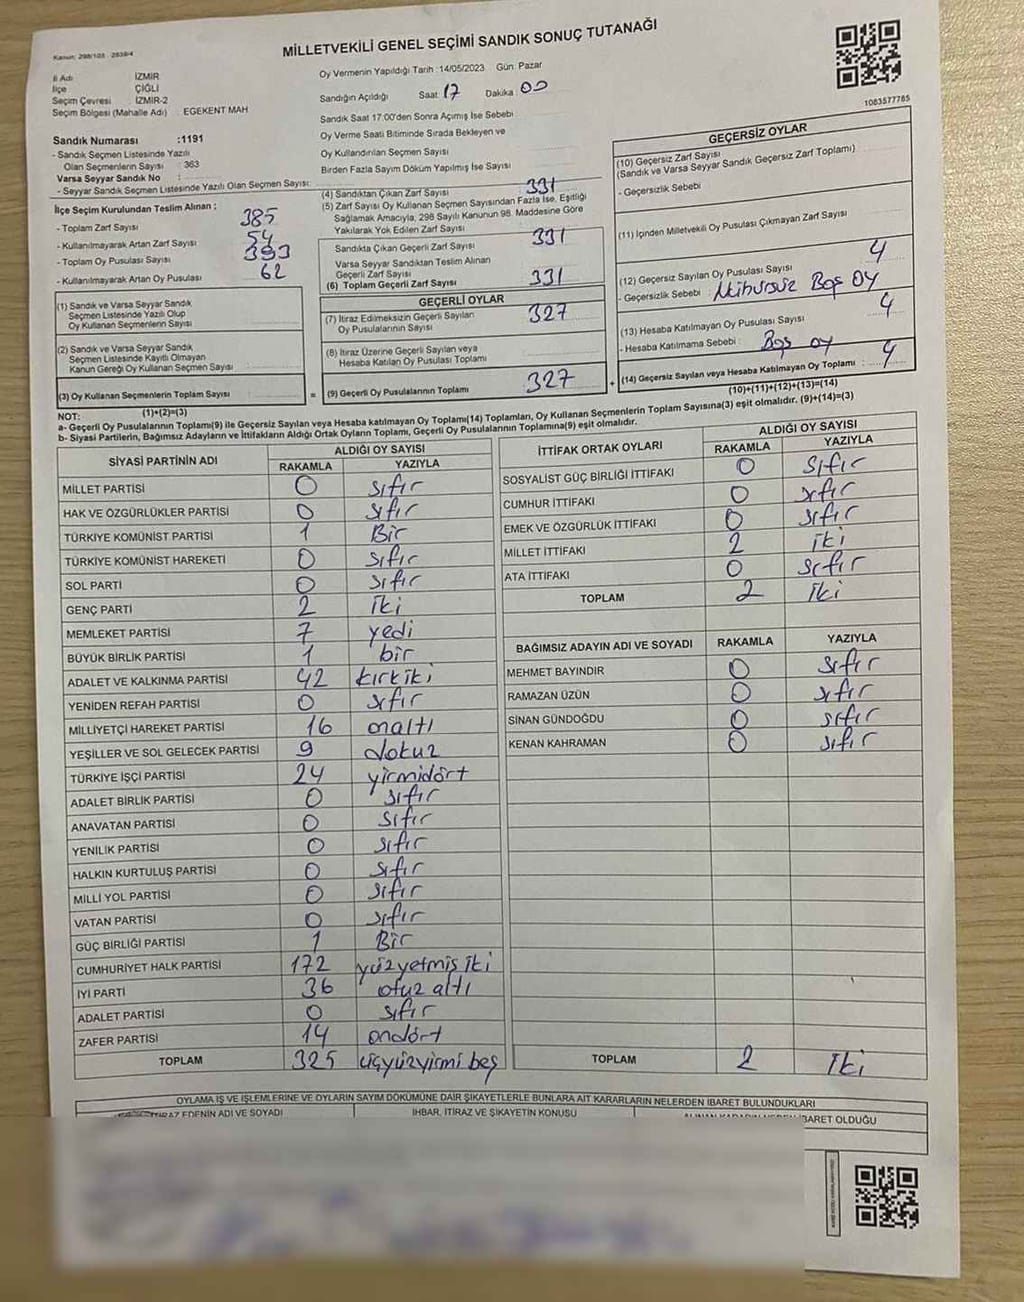 Kanun: 298/105 - 2839/4
MİLLETVEKİLİ GENEL SEÇİMİ SANDIK SONUÇ TUTANAĞI
1083577785
İl Adı İZMİR
İlçe ÇİĞLİ
Seçim Çevresi İZMİR-2
Seçim Bölgesi (Mahalle Adı) : EGEKENT MAH
Sandık Numarası :1191
- Sandık Seçmen Listesinde Yazılı
Olan Seçmenlerin Sayısı : 363
Varsa Seyyar Sandık No :
- Seyyar Sandık Seçmen Listesinde Yazılı Olan Seçmen Sayısı:
İlçe Seçim Kurulundan Teslim Alınan :
- Toplam Zarf Sayısı 385
- Kullanılmayarak Artan Zarf Sayısı 54
- Toplam Oy Pusulası Sayısı 393
- Kullanılmayarak Artan Oy Pusulası 62
(1) Sandık ve Varsa Seyyar Sandık
Seçmen Listesinde Yazılı Olup
Oy Kullanan Seçmenlerin Sayısı
(2) Sandık ve Varsa Seyyar Sandık
Seçmen Listesinde Kayıtlı Olmayan
Kanun Gereği Oy Kullanan Seçmen Sayısı
(3) Oy Kullanan Seçmenlerin Toplam Sayısı
(1)+(2)=(3)
Oy Vermenin Yapıldığı Tarih :14/05/2023 Gün: Pazar
Sandığın Açıldığı Saat: 17 Dakika: 00
Sandık Saat 17:00'den Sonra Açımış İse Sebebi
Oy Verme Saati Bitiminde Sırada Bekleyen ve
Oy Kullandırılan Seçmen Sayısı
Birden Fazla Sayım Döküm Yapılmış İse Sayısı
(4) Sandıktan Çıkan Zarf Sayısı 331
(5) Zarf Sayısı Oy Kullanan Seçmen Sayısından Fazla İse, Eşitliği
Sağlamak Amacıyla, 298 Sayılı Kanunun 98. Maddesine Göre
Yakılarak Yok Edilen Zarf Sayısı
Sandıkta Çıkan Geçerli Zarf Sayısı 331
Varsa Seyyar Sandıktan Teslim Alınan
Geçerli Zarf Sayısı
(6) Toplam Geçerli Zarf Sayısı 331
GEÇERLİ OYLAR
(7) İtiraz Edilmeksizin Geçerli Sayılan
Oy Pusulalarının Sayısı 327
(8) İtiraz Üzerine Geçerli Sayılan veya
Hesaba Katılan Oy Pusulası Toplamı
= (9) Geçerli Oy Pusulalarının Toplamı 327 +
GEÇERSİZ OYLAR
(10) Geçersiz Zarf Sayısı
(Sandık ve Varsa Seyyar Sandık Geçersiz Zarf Toplamı)
- Geçersizlik Sebebi
(11) İçinden Milletvekili Oy Pusulası Çıkmayan Zarf Sayısı
(12) Geçersiz Sayılan Oy Pusulası Sayısı 4
- Geçersizlik Sebebi : Mühürsüz Boş Oy
(13) Hesaba Katılmayan Oy Pusulası Sayısı 4
- Hesaba Katılmama Sebebi : Boş oy
(14) Geçersiz Sayılan veya Hesaba Katılmayan Oy Toplamı : 4
(10)+(11)+(12)+(13)=(14)
NOT:
a- Geçerli Oy Pusulalarının Toplamı(9) ile Geçersiz Sayılan veya Hesaba katılmayan Oy Toplamı(14) Toplamları, Oy Kullanan Seçmenlerin Toplam Sayısına(3) eşit olmalıdır. (9)+(14)=(3)
b- Siyasi Partilerin, Bağımsız Adayların ve İttifakların Aldığı Ortak Oyların Toplamı, Geçerli Oy Pusulalarının Toplamına(9) eşit olmalıdır.
SİYASİ PARTİNİN ADI ALDIĞI OY SAYISI
RAKAMLA YAZIYLA
MİLLET PARTİSİ 0 sıfır
HAK VE ÖZGÜRLÜKLER PARTİSİ 0 sıfır
TÜRKİYE KOMÜNİST PARTİSİ 1 Bir
TÜRKİYE KOMÜNİST HAREKETİ 0 sıfır
SOL PARTİ 0 sıfır
GENÇ PARTİ 2 iki
MEMLEKET PARTİSİ 7 yedi
BÜYÜK BİRLİK PARTİSİ 1 bir
ADALET VE KALKINMA PARTİSİ 42 kırkiki
YENİDEN REFAH PARTİSİ 0 sıfır
MİLLİYETÇİ HAREKET PARTİSİ 16 onaltı
YEŞİLLER VE SOL GELECEK PARTİSİ 9 dokuz
TÜRKİYE İŞÇİ PARTİSİ 24 yirmidört
ADALET BİRLİK PARTİSİ 0 sıfır
ANAVATAN PARTİSİ 0 sıfır
YENİLİK PARTİSİ 0 sıfır
HALKIN KURTULUŞ PARTİSİ 0 sıfır
MİLLİ YOL PARTİSİ 0 sıfır
VATAN PARTİSİ 0 sıfır
GÜÇ BİRLİĞİ PARTİSİ 1 Bir
CUMHURİYET HALK PARTİSİ 172 yüzyetmiş iki
İYİ PARTİ 36 otuz altı
ADALET PARTİSİ 0 sıfır
ZAFER PARTİSİ 14 ondört
TOPLAM 325 üçyüzyirmi beş
İTTİFAK ORTAK OYLARI ALDIĞI OY SAYISI
RAKAMLA YAZIYLA
SOSYALİST GÜÇ BİRLİĞİ İTTİFAKI 0 sıfır
CUMHUR İTTİFAKI 0 sıfır
EMEK VE ÖZGÜRLÜK İTTİFAKI 0 sıfır
MİLLET İTTİFAKI 2 iki
ATA İTTİFAKI 0 sıfır
TOPLAM 2 iki
BAĞIMSIZ ADAYIN ADI VE SOYADI RAKAMLA YAZIYLA
MEHMET BAYINDIR 0 sıfır
RAMAZAN ÜZÜN 0 sıfır
SİNAN GÜNDOĞDU 0 sıfır
KENAN KAHRAMAN 0 sıfır
TOPLAM 2 iki
OYLAMA İŞ VE İŞLEMLERİNE VE OYLARIN SAYIM DÖKÜMÜNE DAİR ŞİKAYETLERLE BUNLARA AİT KARARLARIN NELERDEN İBARET BULUNDUKLARI
EDENİN ADI VE SOYADI İHBAR, İTİRAZ VE ŞİKAYETİN KONUSU İBARET OLDUĞU